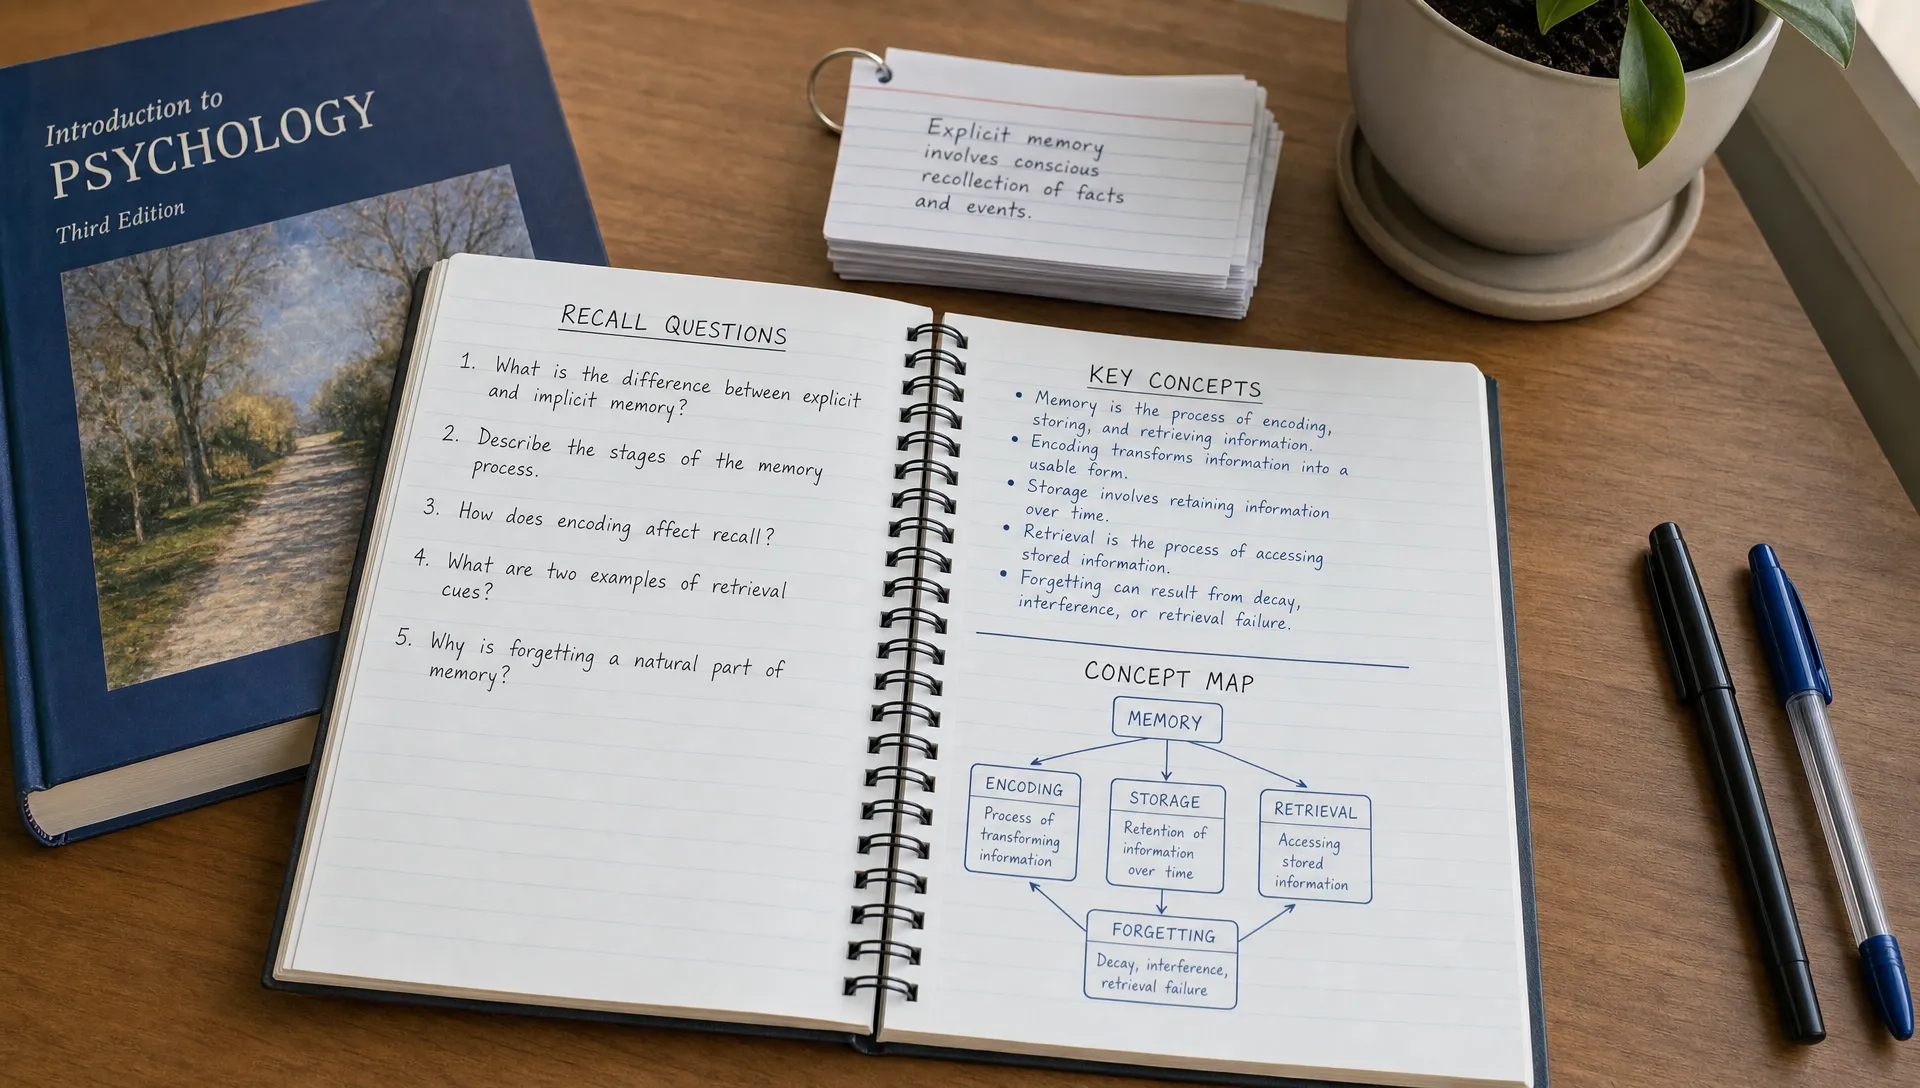 Introduction to
PSYCHOLOGY
Third Edition
Explicit memory
involves conscious
recollection of facts
and events.
RECALL QUESTIONS
1. What is the difference between explicit
and implicit memory?
2. Describe the stages of the memory
process.
3. How does encoding affect recall?
4. What are two examples of retrieval
cues?
5. Why is forgetting a natural part of
memory?
KEY CONCEPTS
• Memory is the process of encoding,
storing, and retrieving information.
• Encoding transforms information into a
usable form.
• Storage involves retaining information
over time.
• Retrieval is the process of accessing
stored information.
• Forgetting can result from decay,
interference, or retrieval failure.
CONCEPT MAP
MEMORY
ENCODING
Process of
transforming
information
STORAGE
Retention of
information
over time
RETRIEVAL
Accessing
stored
information
FORGETTING
Decay, interference,
retrieval failure